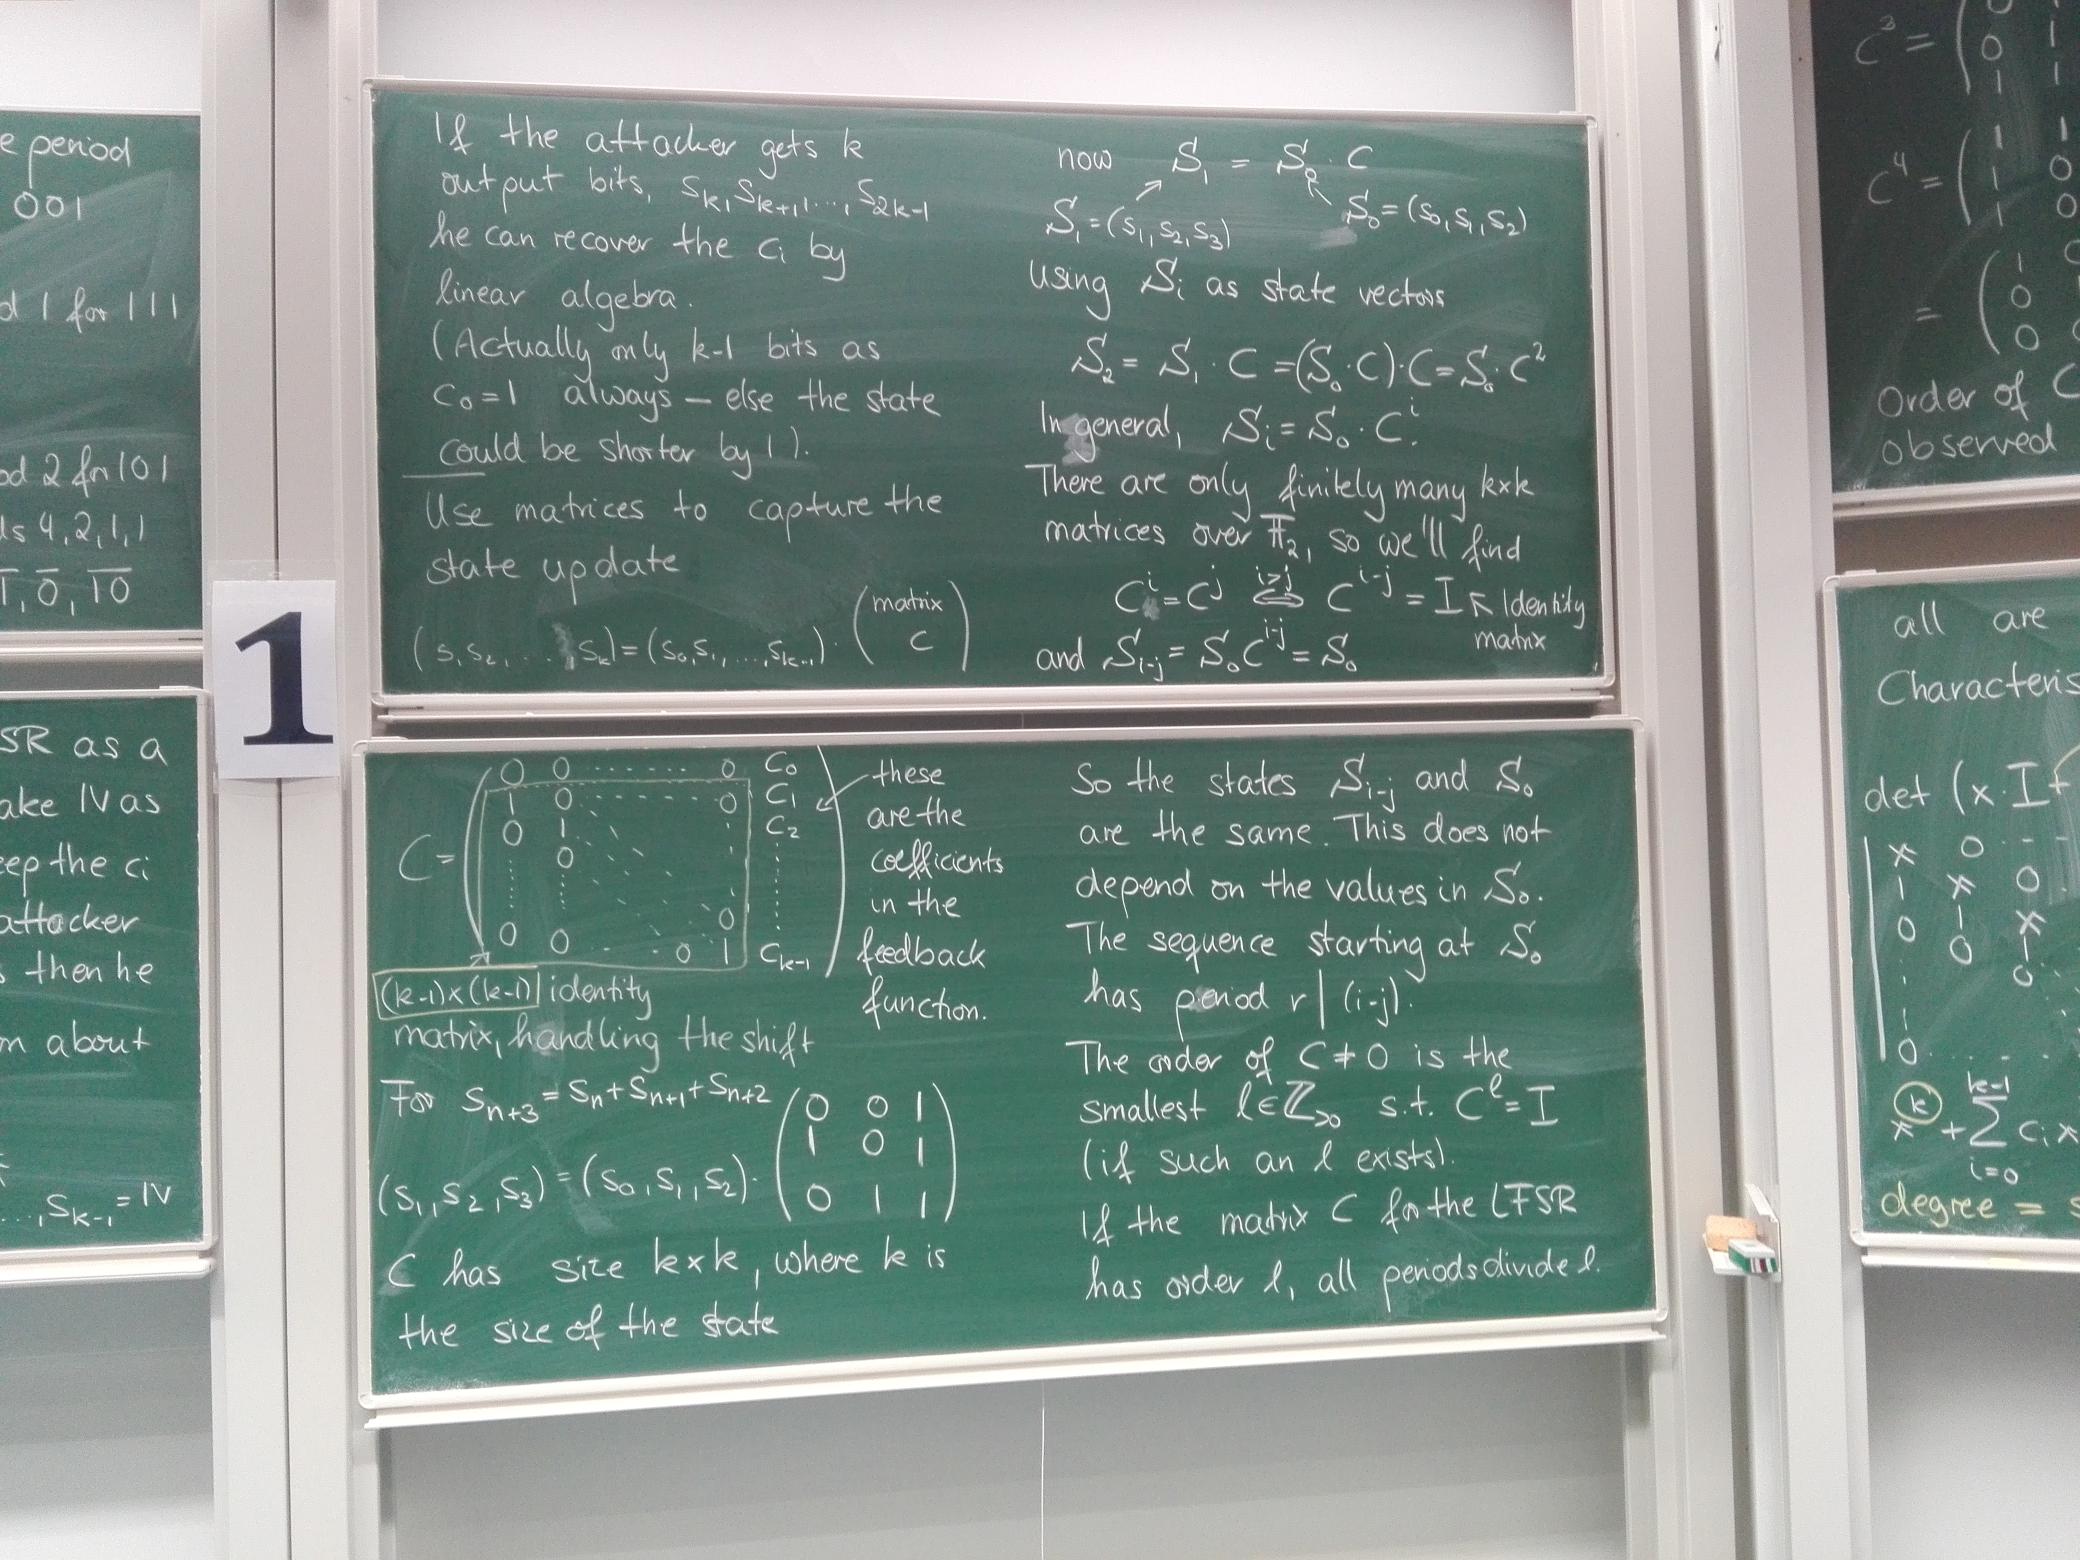 e period
001
d 1 for 111
od 2 for 101
ls 4,2,1,1
1, 0, 10
SR as a
ake IV as
eep the ci
attacker
s then he
m about
..., S_{k-1} = IV
1
If the attacker gets k
output bits, S_k, S_{k+1}, ..., S_{2k-1}
he can recover the c_i by
linear algebra.
(Actually only k-1 bits as
c_0=1 always – else the state
could be shorter by 1).
Use matrices to capture the
state update
(s_1 s_2, ..., s_k) = (s_0, s_1, ..., s_{k-1}) · (matrix C)
now S_1 = S_0 · C
S_1 = (s_1, s_2, s_3) S_0 = (s_0, s_1, s_2)
using S_i as state vectors
S_2 = S_1 · C = (S_0 · C) · C = S_0 · C^2
In general, S_i = S_0 · C^i.
There are only finitely many k×k
matrices over F_2, so we'll find
C^i = C^j i>j ⇔ C^{i-j} = I ↖ Identity
matrix
and S_{i-j} = S_0 C^{i-j} = S_0
C = ( 0 0 ...... 0 c_0
1 0 ...... 0 c_1
0 1 c_2
0
0
0 0 ... 0 1 c_{k-1} )
these
are the
coefficients
in the
feedback
function.
(k-1)×(k-1) identity
matrix, handling the shift
For S_{n+3} = S_n + S_{n+1} + S_{n+2}
(s_1, s_2, s_3) = (s_0, s_1, s_2) · ( 0 0 1
1 0 1
0 1 1 )
C has size k×k, where k is
the size of the state
So the states S_{i-j} and S_0
are the same. This does not
depend on the values in S_0.
The sequence starting at S_0
has period r | (i-j).
The order of C ≠ 0 is the
smallest l ∈ Z_{>0} s.t. C^l = I
(if such an l exists).
If the matrix C for the LFSR
has order l, all periods divide l.
C^3 = ( 0 1
0 1
1 1
C^4 = ( 1 1
1 0
1 0
= ( 1 0
0
0 0
Order of C
observed
all are
Characteris
det (x·I +
x 0 --
1 x 0
0 1 x
0 1
0
0 ....
x^k + Σ_{i=0}^{k-1} c_i x
degree = s